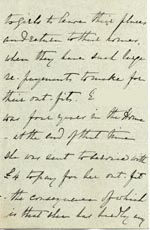 to girls to leave their places
and return to their homes,
when they have such large
re-payments to make for
their out-fits. E
was four years in the Home
- at the end of that time
she was sent to service with
£4 to pay for her out-fit
- the consequence of which
is that when her